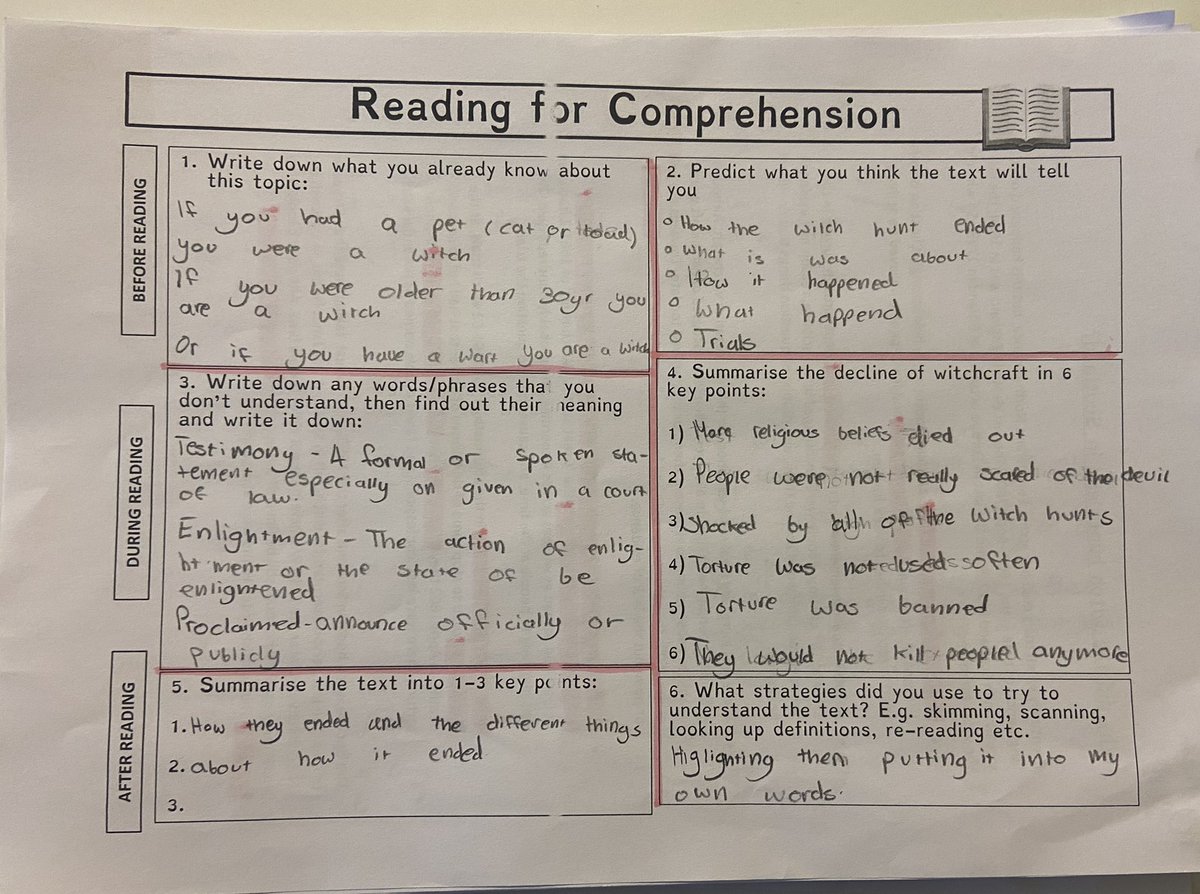 Reading for Comprehension
BEFORE READING
1. Write down what you already know about
this topic:
If you had a pet (cat or toad)
you were a witch
If you were older than 30yr you
are a witch
Or if you have a wart you are a witch
2. Predict what you think the text will tell
you
o How the witch hunt ended
o What is was about
o How it happened
o What happend
o Trials
DURING READING
3. Write down any words/phrases that you
don't understand, then find out their meaning
and write it down:
Testimony - A formal or spoken sta-
tement especially on given in a court
of law.
Enlightment - The action of enlig-
htment or the state of be
enlightened
Proclaimed-announce officially or
publicly
4. Summarise the decline of witchcraft in 6
key points:
1) More religious beliefs died out
2) People were not really scared of the devil
3) Shocked by all of the witch hunts
4) Torture was not used often
5) Torture was banned
6) They would not kill people anymore
AFTER READING
5. Summarise the text into 1-3 key points:
1. How they ended and the different things
2. about how it ended
3.
6. What strategies did you use to try to
understand the text? E.g. skimming, scanning,
looking up definitions, re-reading etc.
Higlighting then putting it into my
own words.